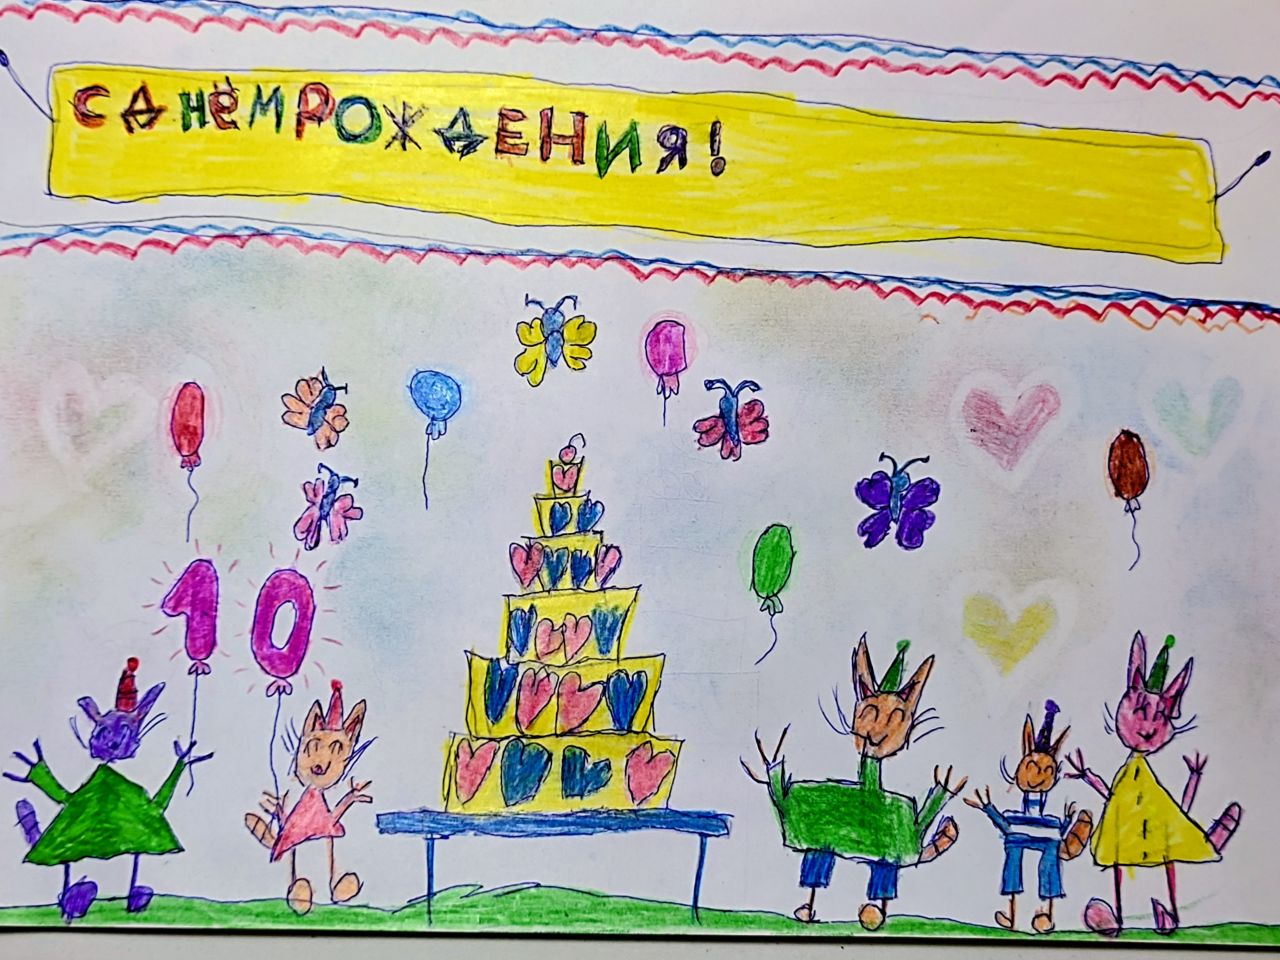 С ДНЁМ РОЖДЕНИЯ!
10